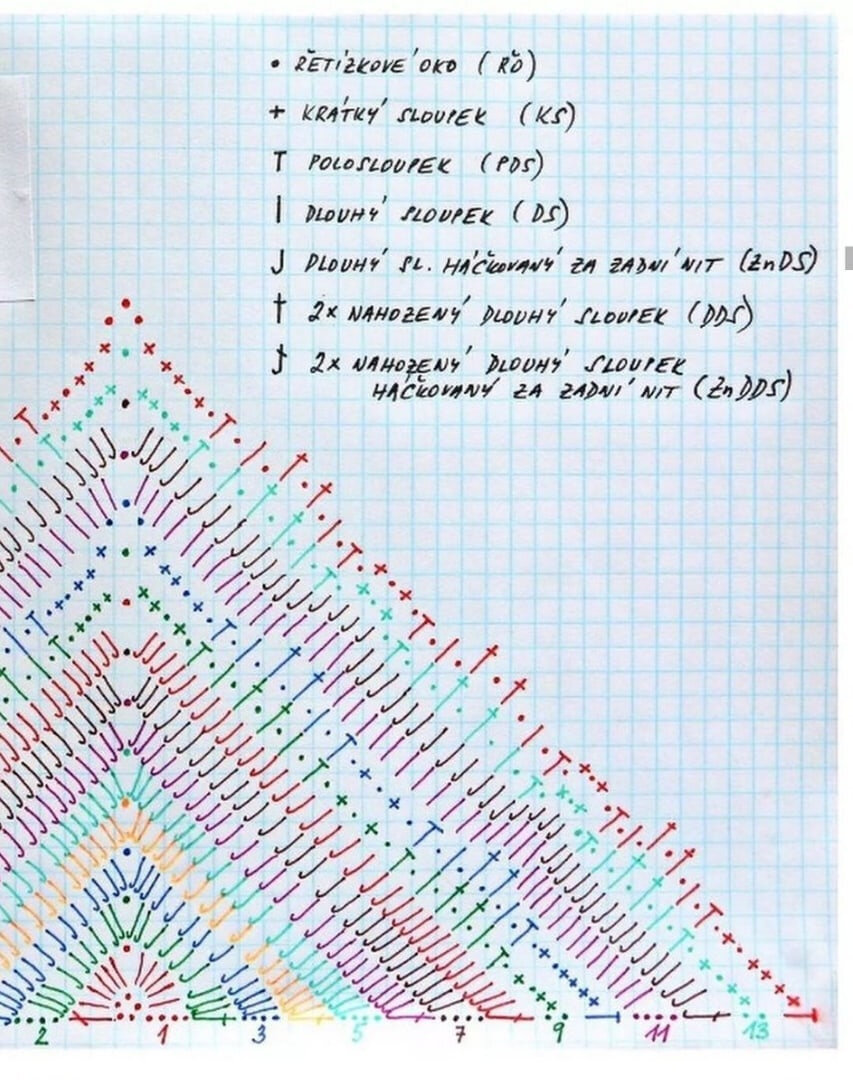 • ŘETÍZKOVÉ OKO (ŘO)
+ KRÁTKÝ SLOUPEK (KS)
T POLOSLOUPEK (PDS)
| DLOUHÝ SLOUPEK (DS)
J DLOUHÝ SL. HÁČKOVANÝ ZA ZADNÍ NIT (ZnDS)
† 2x NAHOZENÝ DLOUHÝ SLOUPEK (DDS)
J 2x NAHOZENÝ DLOUHÝ SLOUPEK
HÁČKOVANÝ ZA ZADNÍ NIT (ZnDDS)
2 1 3 5 7 9 11 13